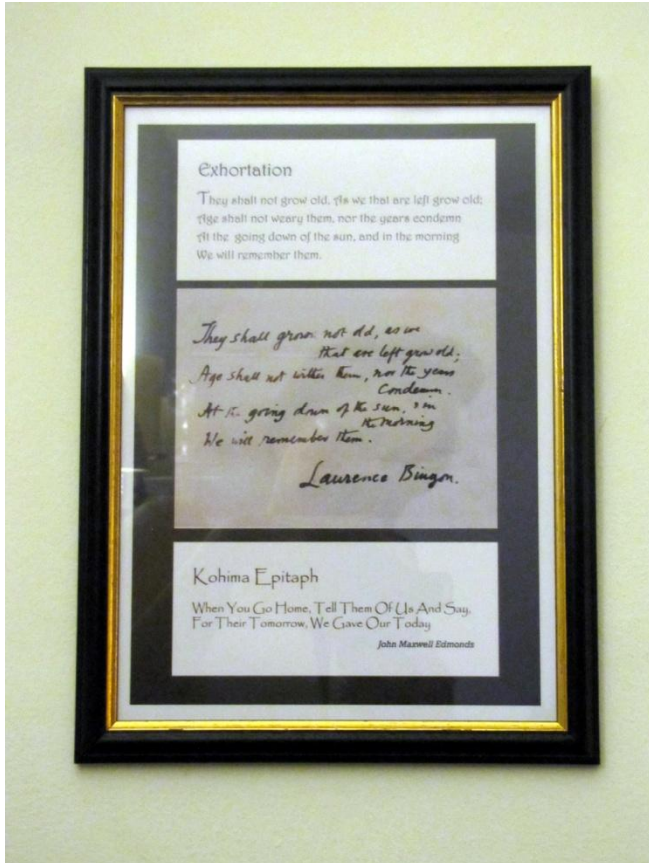 Exhortation
They shall not grow old, As we that are left grow old;
Age shall not weary them, nor the years condemn
At the going down of the sun, and in the morning
We will remember them.
They shall grow not old, as we
that are left grow old;
Age shall not wither them, nor the years
Condemn.
At the going down of the sun, & in
the morning
We will remember them.
Laurence Binyon.
Kohima Epitaph
When You Go Home, Tell Them Of Us And Say,
For Their Tomorrow, We Gave Our Today
John Maxwell Edmonds